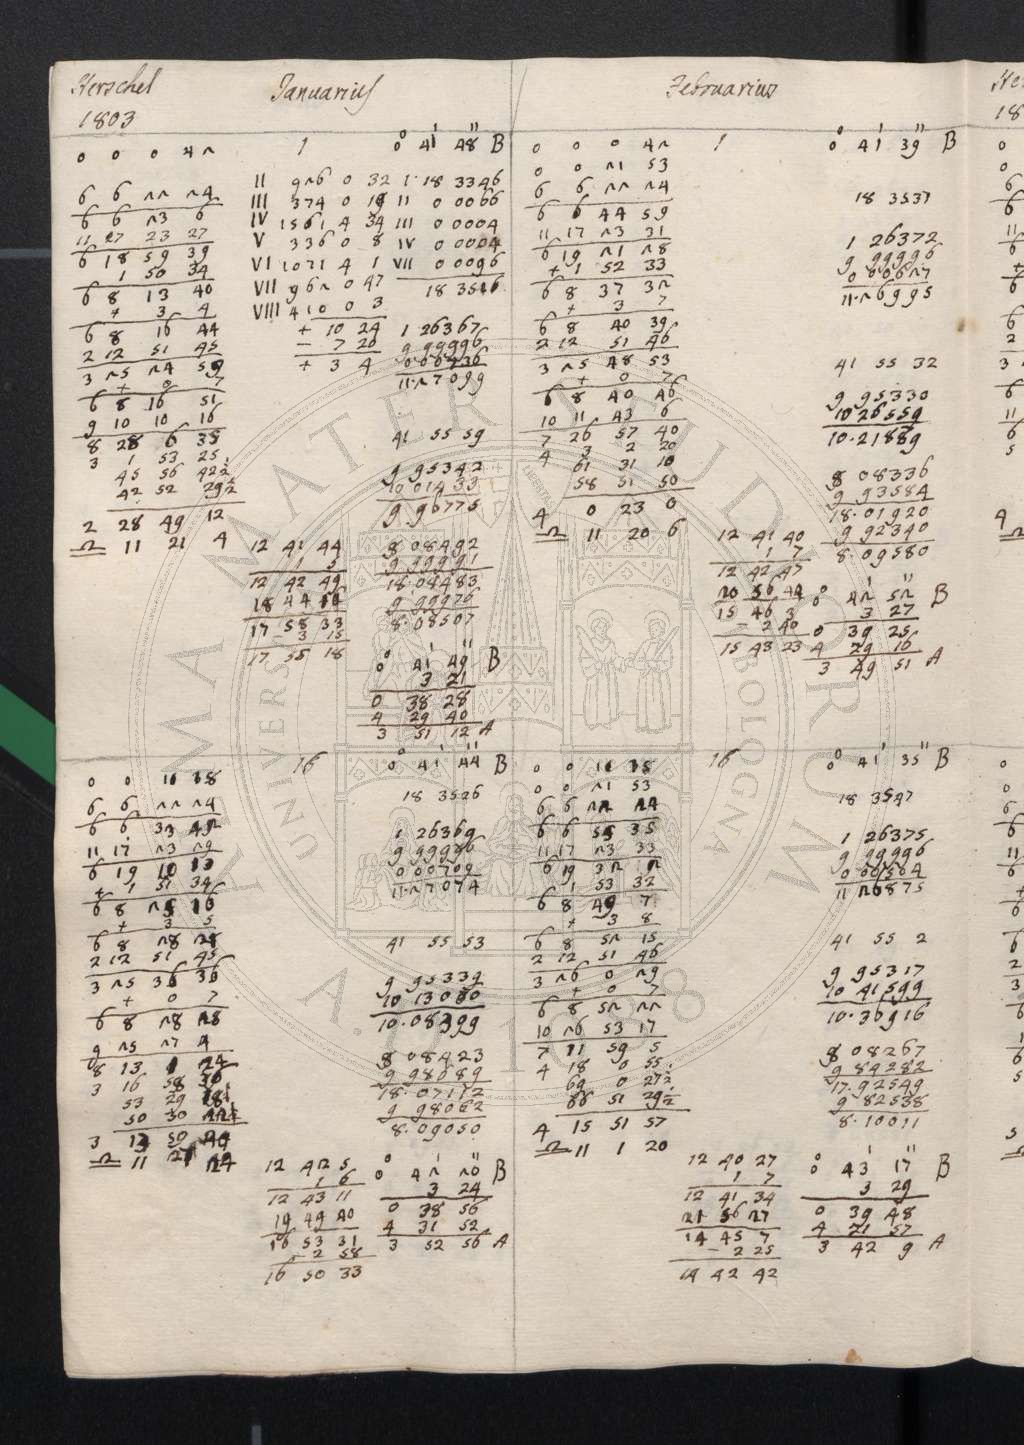 Herschel
1803
Januarius
Februarius
1
0 0 0 42
0 41 48 B
6 6 22 24
6 6 23 6
11 27 23 27
6 18 59 39
1 50 34
6 8 13 40
+ 3 4
6 8 16 44
2 12 51 45
3 25 24 59
+ 0 7
6 8 16 51
9 10 10 16
8 28 6 35
3 1 53 25
45 56 42½
42 52 29½
2 28 49 12
♎ 11 21 4
II 926 0 32
III 374 0 19
IV 1561 4 34
V 336 0 8
VI 1071 4 1
VII 962 0 47
VIII 410 0 3
+ 10 24
– 7 20
+ 3 4
1· 18 3346
II 0 0066
III 0 0004
IV 0 0004
VII 0 0096
18 3516
1 26367
9 99996
0 00736
11·27099
41 55 59
9 95342
10 01433
9 96775
8 08492
9 99991
18·08483
9 99976
8·08507
12 41 44
1 5
12 42 49
18 44 16
17 58 33
– 3 15
17 55 18
0 41 49 B
3 21
0 38 28
4 29 40
3 51 12 A
1
0 0 0 42
0 41 39 B
0 0 21 53
6 6 22 24
6 6 44 59
11 17 23 31
6 19 21 28
+ 1 52 33
6 8 37 32
+ 3 7
6 8 40 39
2 12 51 46
3 25 48 53
+ 0 7
6 8 40 46
10 11 43 6
7 26 57 40
4 3 2 20
61 31 10
58 51 50
4 0 23 0
♎ 11 20 6
18 3537
1 26372
9 99996
0 00627
11·26995
41 55 32
9 95330
10 26559
10·21889
8 08336
9 93584
18·01920
9 92340
8·09580
12 41 40
1 7
12 42 47
20 56 44
15 46 3
– 2 40
15 43 23
0 42 52 B
3 27
0 39 25
4 29 16
3 49 51 A
16
0 0 10 38
0 41 44 B
6 6 22 24
6 6 33 42
11 17 23 29
6 19 10 13
+ 1 51 34
6 8 25 16
+ 3 5
6 8 28 28
2 12 51 45
3 25 36 36
+ 0 7
6 8 28 28
9 25 27 4
8 13 1 24
3 16 58 36
53 29 18
3 13 50
♎ 11 21 24
18 3526
1 26369
9 99996
0 00709
11·27074
41 55 53
9 95339
10 13060
10·08399
8 08423
9 98689
18·07112
9 98062
8·09050
12 42 5
1 6
12 43 11
19 49 40
16 53 31
– 2 58
16 50 33
0 42 20 B
3 24
0 38 56
4 31 52
3 52 56 A
16
0 0 10 38
0 41 35 B
0 0 21 53
6 6 22 24
6 6 55 35
11 17 23 33
6 19 32 2
1 53 32
6 8 49 7
+ 3 8
6 8 52 15
2 12 51 46
3 26 0 29
+ 0 7
6 8 52 22
10 26 53 17
7 11 59 5
4 18 0 55
69 0 27½
66 51 29½
4 15 51 57
♎ 11 1 20
18 3547
1 26375
9 99996
0 00504
11 26875
41 55 2
9 95317
10 41599
10·36916
8 08267
9 84282
17·92549
9 82538
8·10011
12 40 27
1 7
12 41 34
21 56 27
14 45 7
– 2 25
14 42 42
0 43 17 B
3 29
0 39 48
4 21 57
3 42 9 A
ALMA MATER STUDIORUM
UNIVERSITÀ DI BOLOGNA
A.D. 1088